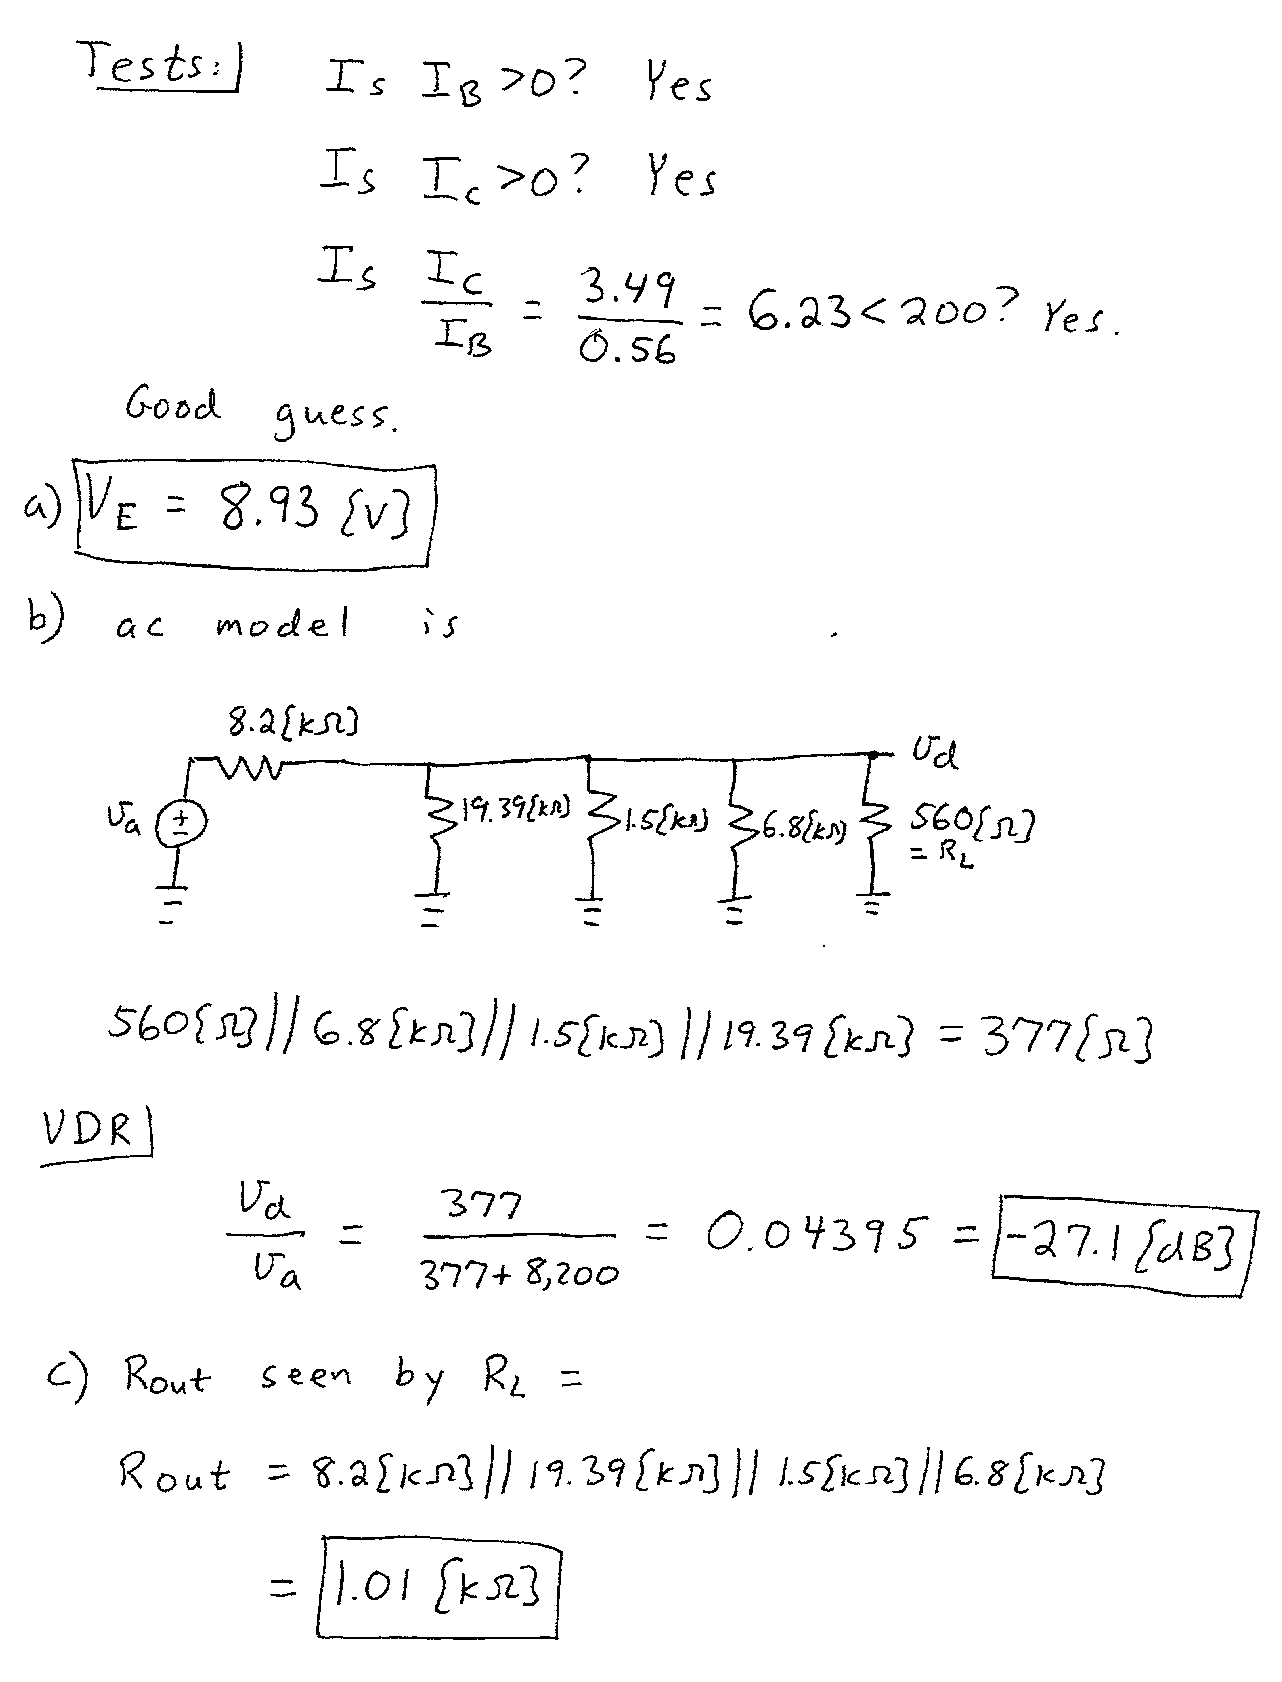 Tests:
Is I_B >0? Yes
Is I_C >0? Yes
Is I_C / I_B = 3.49 / 0.56 = 6.23 < 200? Yes.
Good guess.
a) V_E = 8.93 {V}
b) ac model is
8.2{kΩ}
v_d
v_a + − 19.39{kΩ} 1.5{kΩ} 6.8{kΩ} 560{Ω}
= R_L
560{Ω}||6.8{kΩ}||1.5{kΩ}||19.39{kΩ} = 377{Ω}
VDR
v_d / v_a = 377 / 377+8,200 = 0.04395 = -27.1 {dB}
c) Rout seen by R_L =
Rout = 8.2{kΩ}||19.39{kΩ}||1.5{kΩ}||6.8{kΩ}
= 1.01 {kΩ}